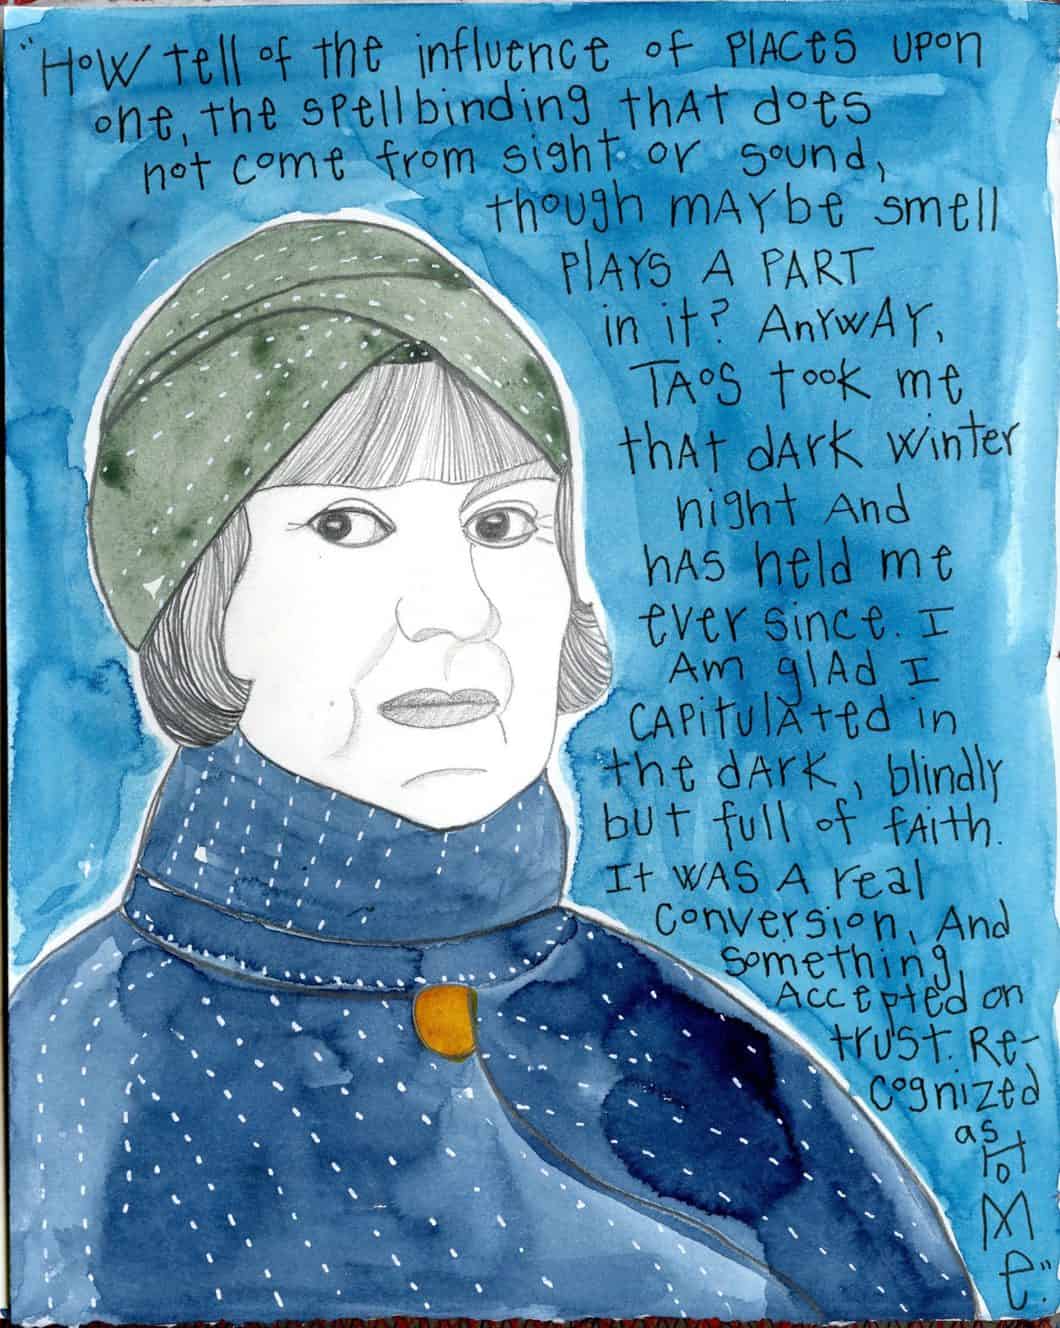 "HOW tell of the influence of PlAces upon
one, the spellbinding thAt does
not come from sight or sound,
though mAYbe smell
PlAYS A PART
in it? AnYwAY,
TAos took me
thAt dArk winter
night And
hAs held me
ever since. I
Am glAd I
CAPitulAted in
the dArk, blindly
but full of fAith.
It wAs A real
conversion, And
something,
Accepted on
trust. Re-
cognized
as
Ho
M
e."